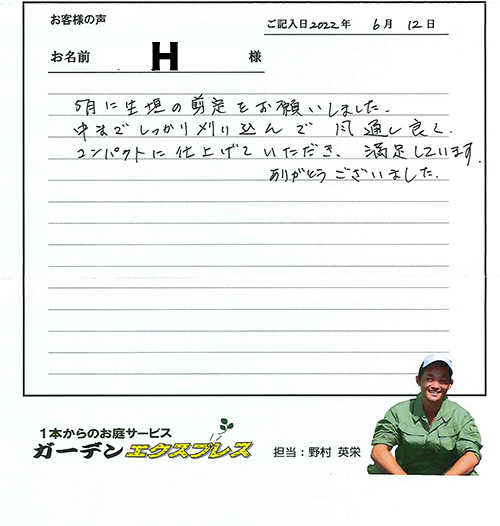 お客様の声
ご記入日2022年 6月 12日
お名前 H 様
5月に生垣の剪定をお願いしました。
中までしっかり刈り込んで 風通し良く、
コンパクトに仕上げていただき、満足しています。
ありがとうございました。
1本からのお庭サービス
ガーデンエクスプレス
担当：野村 英栄